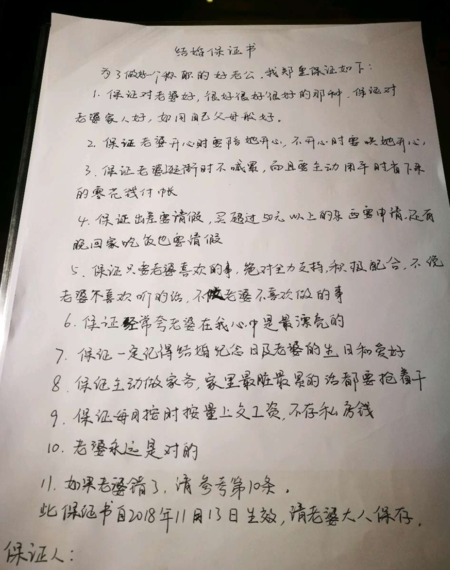 结婚保证书
为了做好一个称职的好老公,我郑重保证如下:
1. 保证对老婆好,很好很好很好的那种.保证对
老婆家人好,如同自己父母般好。
2. 保证老婆开心时要陪她开心,不开心时要哄她开心,
3. 保证老婆逛街时不喊累,而且要主动用平时省下来
的零花钱付帐
4. 保证出差要请假,买超过50元以上的东西要申请.还有
晚回家吃饭也要请假
5. 保证只要老婆喜欢的事,绝对全力支持,积极配合,不说
老婆不喜欢听的话,不做老婆不喜欢做的事
6. 保证经常夸老婆在我心中是最漂亮的
7. 保证一定记得结婚纪念日及老婆的生日和爱好
8. 保证主动做家务,家里最脏最累的活都要抢着干
9. 保证每月按时按量上交工资,不存私房钱
10. 老婆永远是对的
11. 如果老婆错了,请参考第10条。
此保证书自2018年11月13日生效,请老婆大人保存.
保证人: